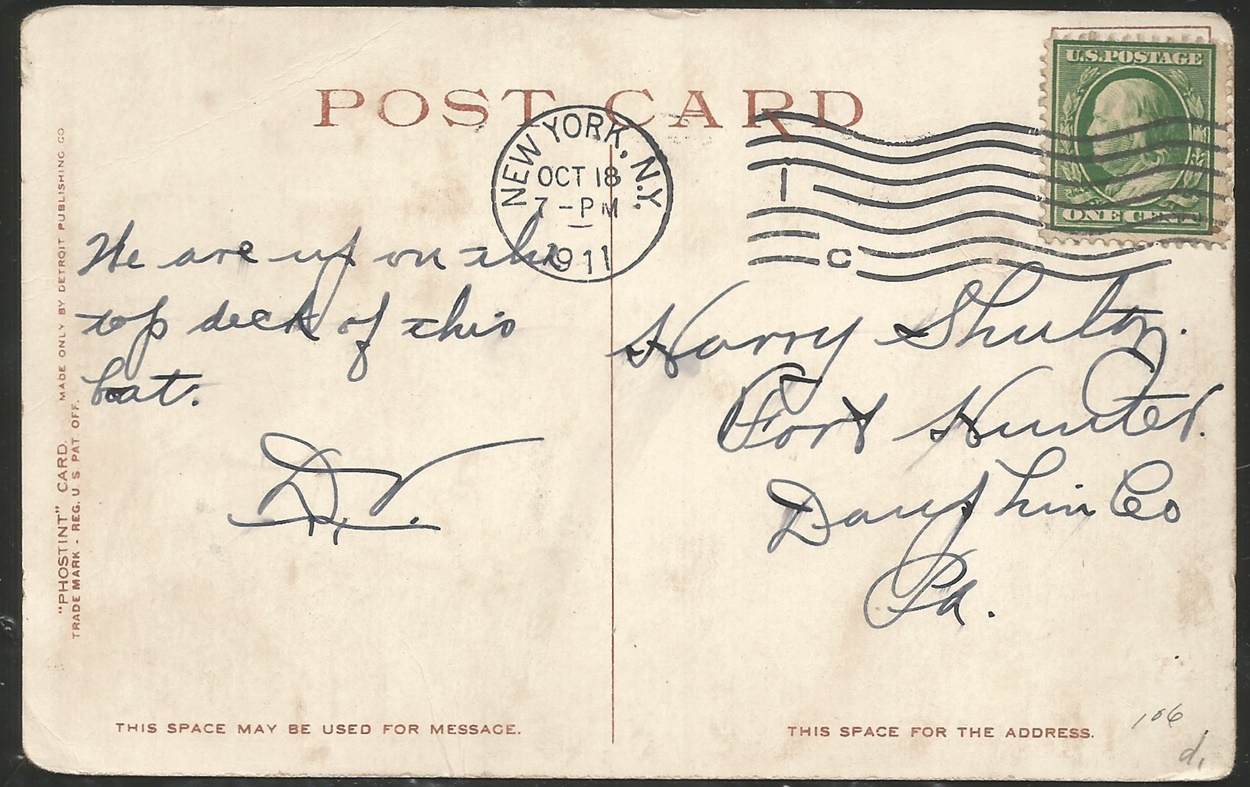 POST CARD
U.S. POSTAGE
ONE CENT
NEW YORK, N.Y.
OCT 18
7 - PM
1911
1
C
We are up on the
top deck of this
boat.
Harry Shultz.
Fort Hunter.
Dauphin Co
Pa.
"PHOSTINT" CARD. MADE ONLY BY DETROIT PUBLISHING CO
TRADE MARK - REG. U. S. PAT OFF.
THIS SPACE MAY BE USED FOR MESSAGE.
THIS SPACE FOR THE ADDRESS.
106
d,